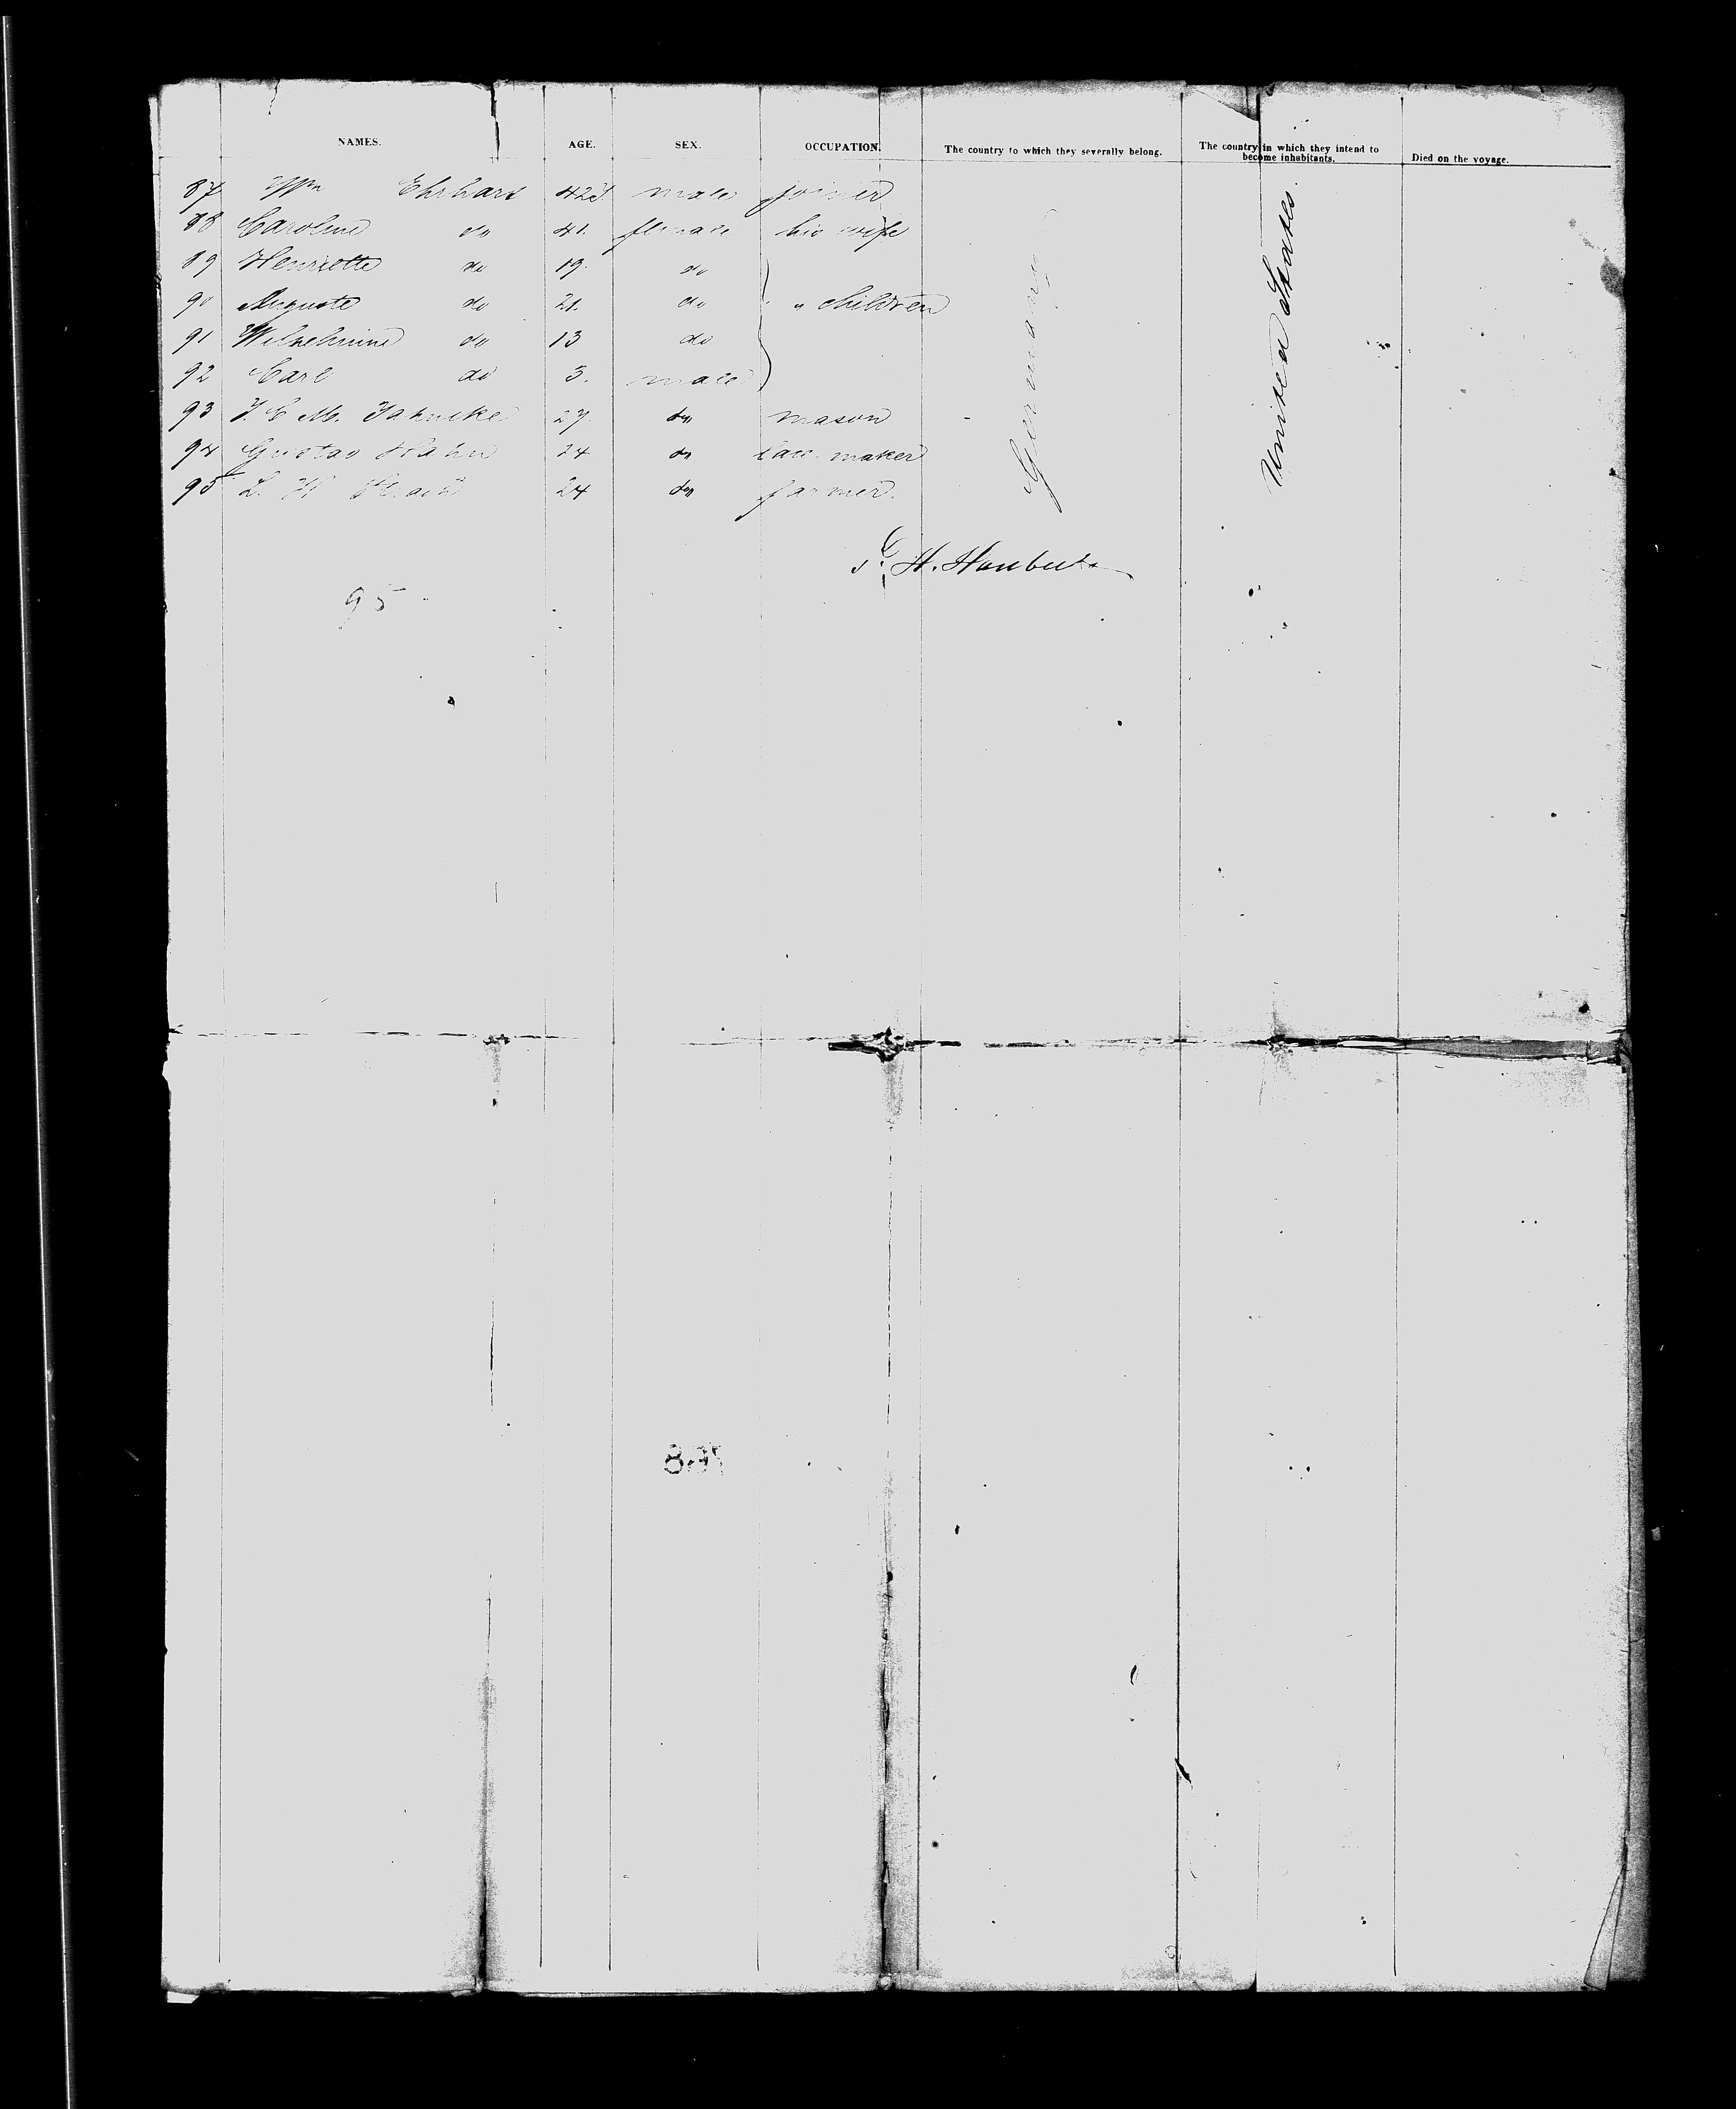 NAMES. AGE. SEX. OCCUPATION. The country to which they severally belong. The country in which they intend to become inhabitants. Died on the voyage.
87 Wm Ehrhart 42 male joiner
88 Caroline do 41. female his wife
89 Henriette do 19. do
90 Auguste do 21. do " children
91 Wilhelmine do 13 do
92 Carl do 5. male
93 J. C. M. Jahncke 27. do mason
94 Gustav Hahn 24 do lace-maker
95 L. 24 do farmer.
Germany
United States
H.
95